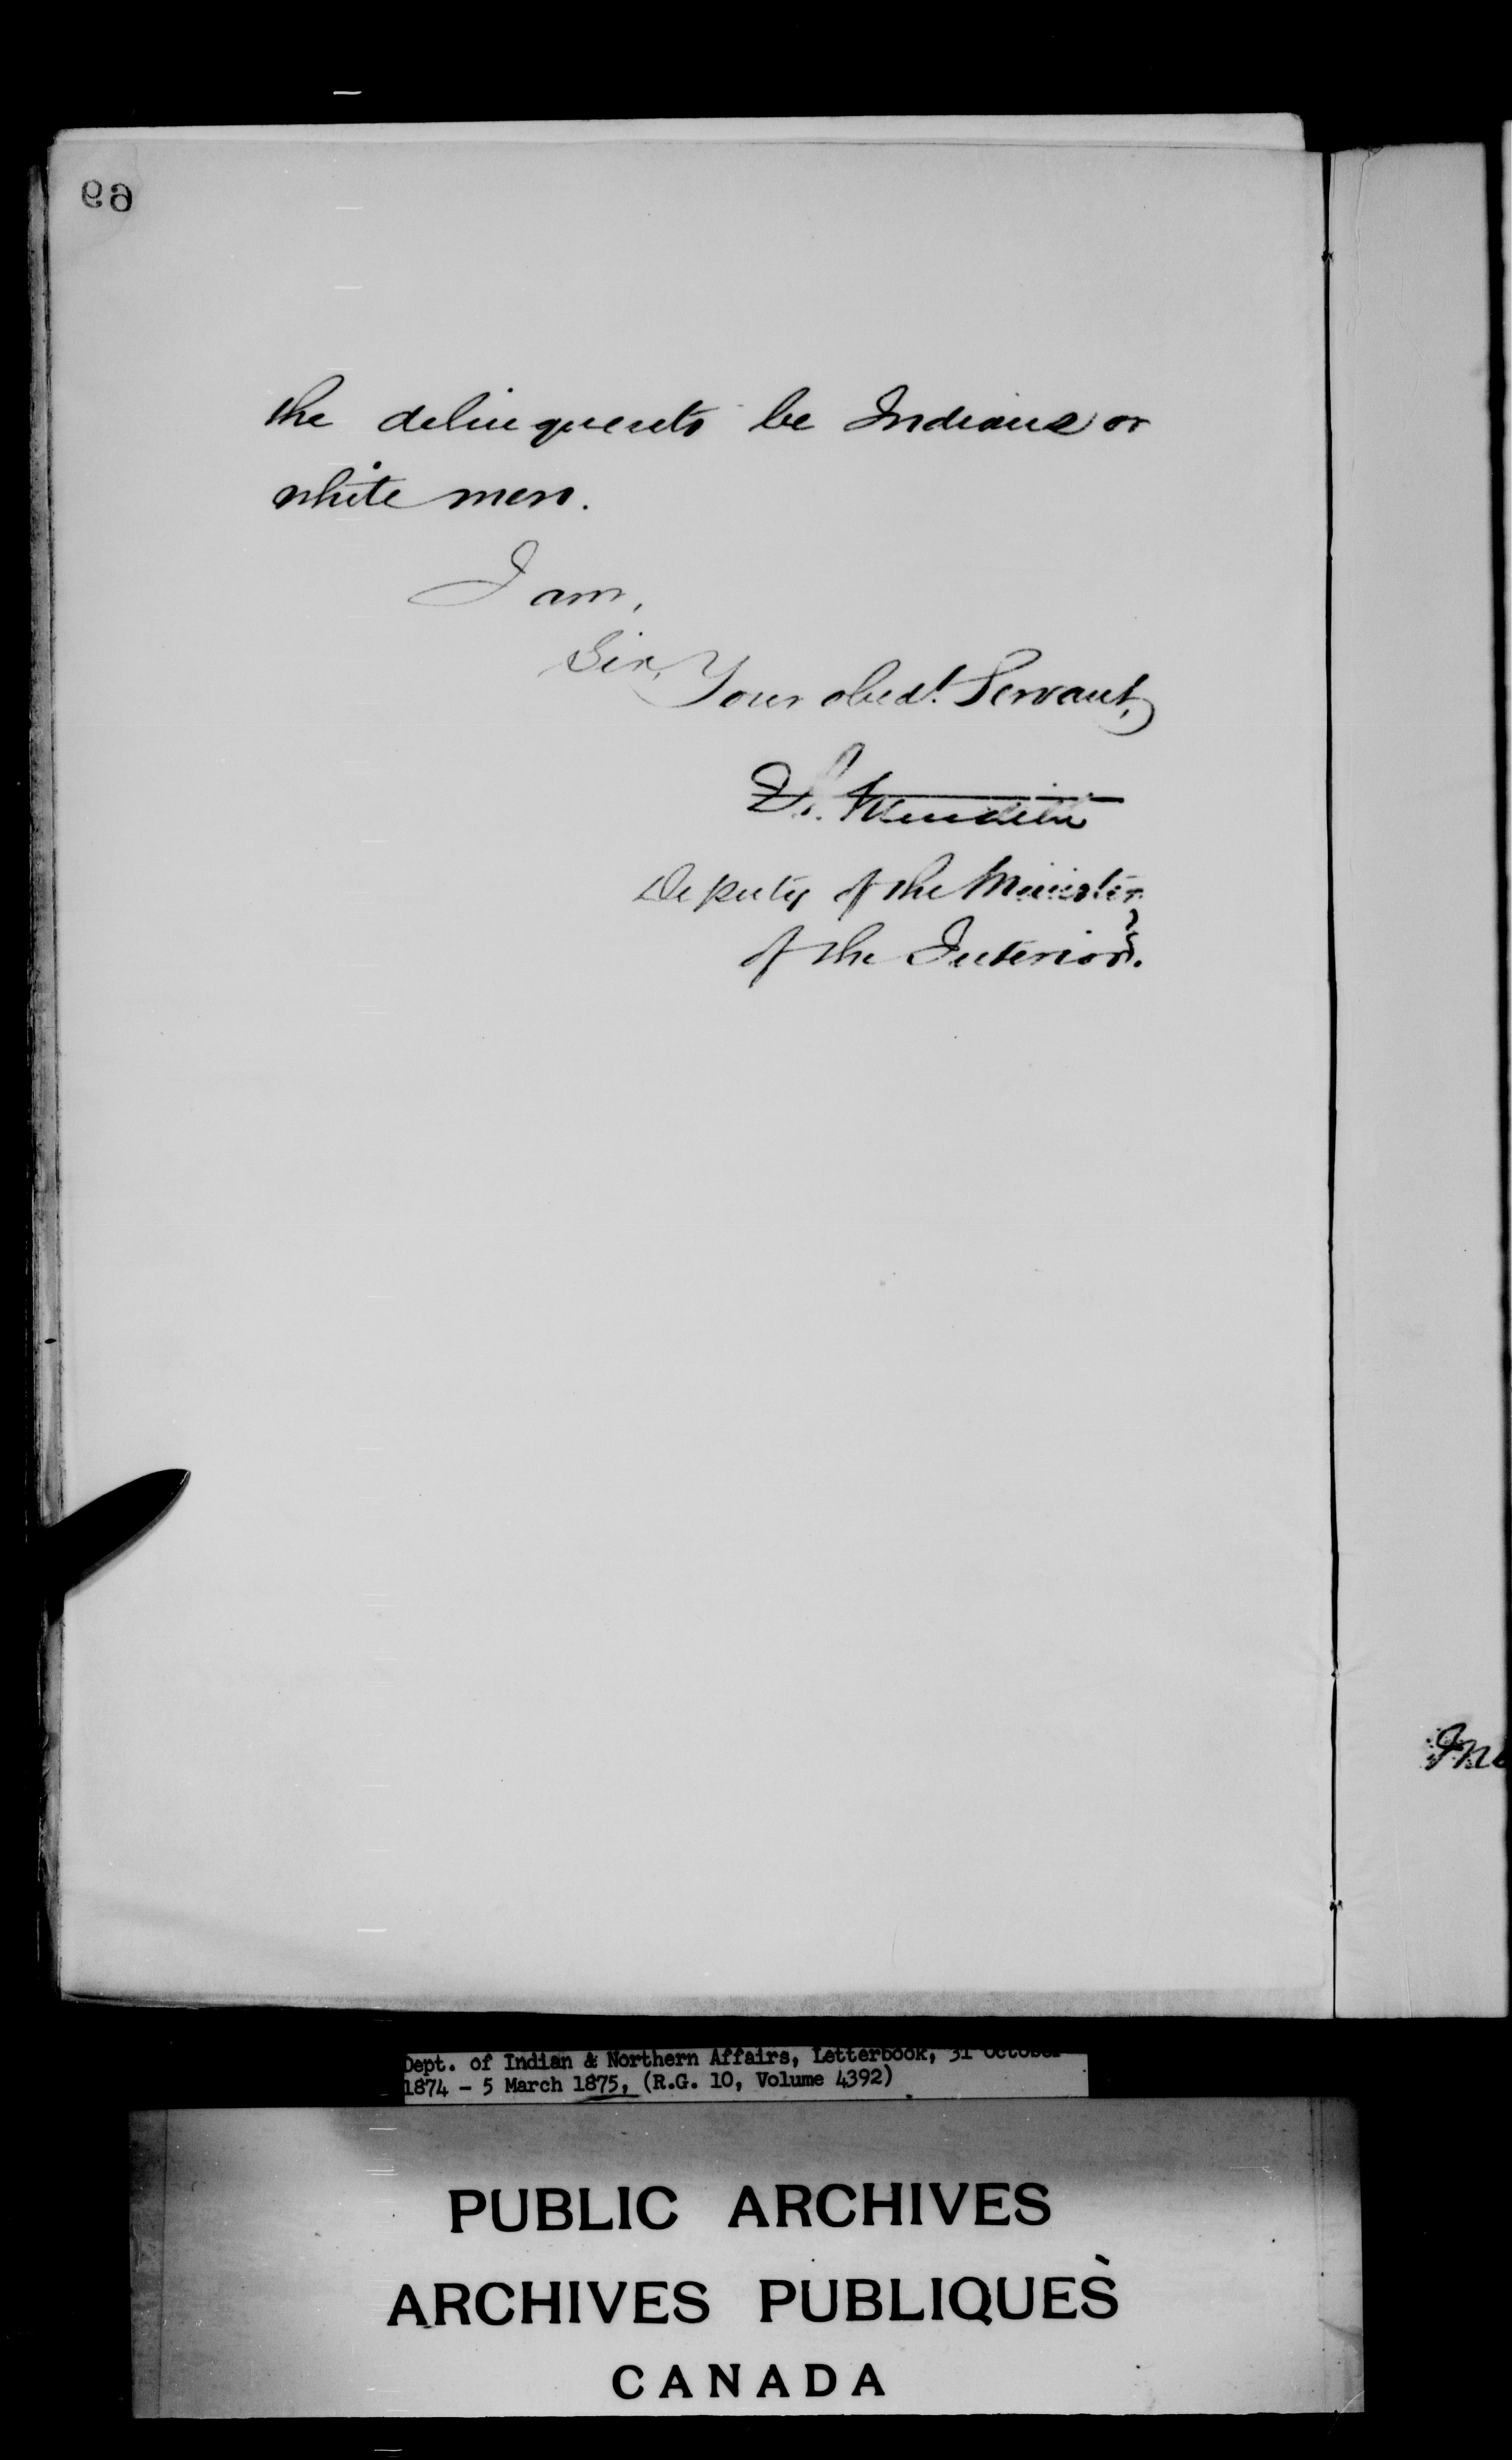 69
the delinquents be Indians or
white men.
I am,
Sir,
Your obedt. Servant,
Meredith
Deputy of the Minister
of the Interior.
Dept. of Indian & Northern Affairs, Letterbook, 31 October
1874 - 5 March 1875, (R.G. 10, Volume 4392)
PUBLIC ARCHIVES
ARCHIVES PUBLIQUES
CANADA